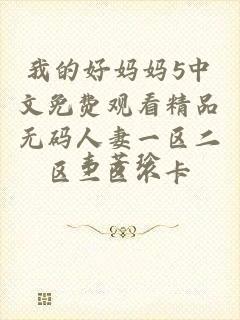 我的好妈妈5中
文免费观看精品
无码人妻一区二
区三区不卡